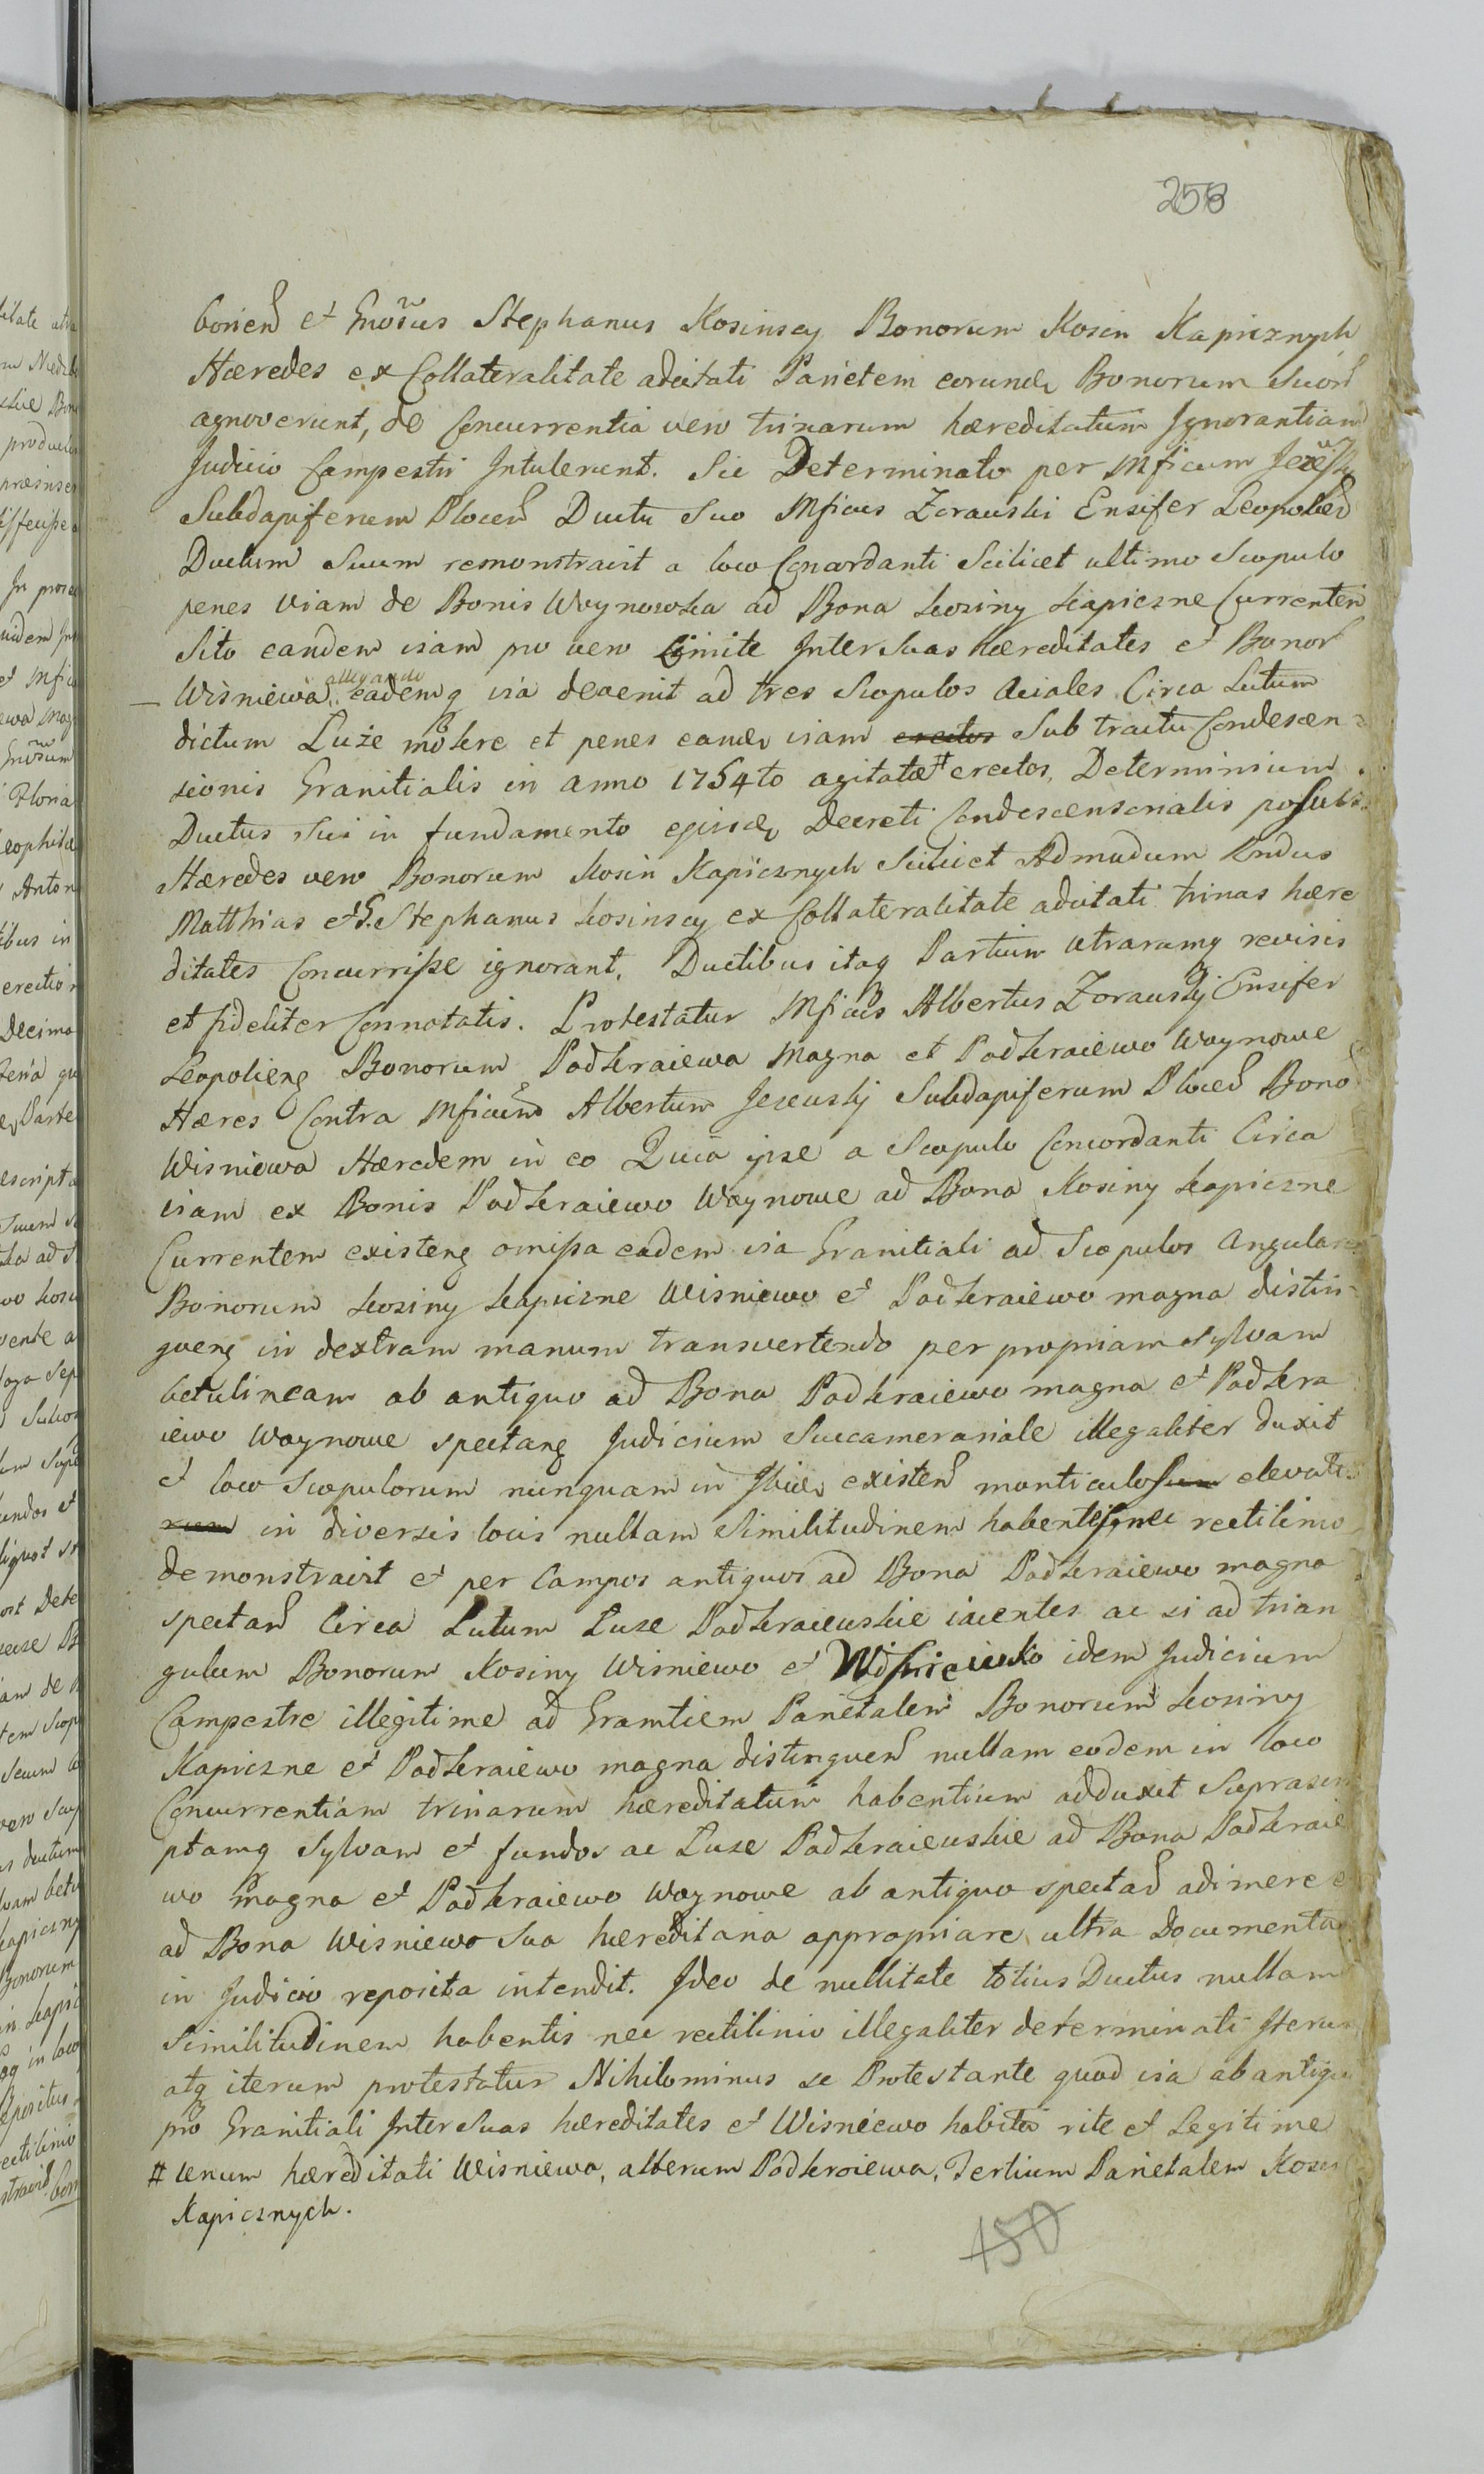 253
borień et Gnosus Stephanus Kosinscy Bonorum Kosin Kapicznych
Hæredes ex Collateralitate adcitati Parietem eorund Bonorum Suor
agnoverunt, de Concurrentia vero trinarum hæreditatum Ignorantiam
Judicio Campestri Intulerunt. Sic Determinato per Mficum
Subdapiferum Plocen Ductu Suo Mficus Zorawski Ensifer Leopolien
Ductum Suum remonstravit a loco Concordanti Scilicet ultimo Scopulo
penes Viam de Bonis Woynowska ad Bona Kosiny Kapiczne Currentem
Sito eandem viam pro vero Limite Inter Suas hæreditates et Bonor
Wisniewa allegando eademq via devenit ad tres Scopulos Aciales Circa Lutum
dictum Luże mokre et penes eand viam erectos Sub tractu Condescen=
sionis Granitialis in anno 1754to agitatæ # erectos, Determinium
Ductus Sui in fundamento ejusd Decreti Condescensorialis posuit
Hæredes vero Bonorum Kosin Kapicznych Scilicet Admodum Rndus
Matthias et G. Stephanus Kosinscy ex Collateralitate adcitati trinas hære
ditates Concurrisse ignorant. Ductibus itaq Partium utrarumq revisis
et fideliter Connotatis. Protestatur Mficus Albertus Zorawskj Ensifer
Leopolieng Bonorum Podkraiewa Magna et Podkraiewo Woynowe
Hæres Contra Mficum Albertum Jezewskj Subdapiferum Plocen Bono
Wisniewa Hæredem in eo Quia ipse a Scopulo Concordanti Circa
viam ex Bonis Podkraiewo Woynowe ad Bona Kosiny Kapiczne
Currentem existeng omissa eadem via Granitiali ad Scopulos Angulares
Bonorum Kosiny Kapiczne Wisniewo et Podkraiewo magna distin=
gueng in dextram manum transvertendo per propriam Sylvam
betulineam ab antiquo ad Bona Podkraiewo magna et Podkra
iewo Woynowe spectang Judicium Succamerariale illegaliter duxit
et loco Scopulorum nunquam in existen monticulosum elevatis
rum in diversis locis nullam Similitudinem habentes nec rectilinio
demonstravit et per Campos antiquos ad Bona Podkraiewo magna
spectan Circa Lutum Luze Podkraiewskie iacentes ac si ad trian
gulum Bonorum Kosiny Wisniewo et idem Judicium
Campestre illegitime ad Granitiem Parietalem Bonorum Kosiny
Kapiczne et Podkraiewo magna distinguen nullam eodem in loco
Concurrentiam trinarum hæreditatum habentium adduxit Suprascri
ptamq Sylvam et fundos ac Luze Podkraiewskie ad Bona Podkraie
wo magna et Podkraiewo Woynowe ab antiquo spectan adimere et
ad Bona Wisniewo Sua hæreditaria appropriare ultra Documenta
in Judicio reposita intendit. Ideo de nullitate totius Ductus nullam
Similitudinem habentis nec rectilinio illegaliter determinati Iterum
atq iterum protestatur Nihilominus se Protestante quod via ab antiquo
pro Granitiali Inter Suas hæreditates et Wisniewo habita rite et Legitime
# Unum hæreditati Wisniewo, alterum Podkraiewa, Tertium Parietalem Kosin
Kapicznych.
150